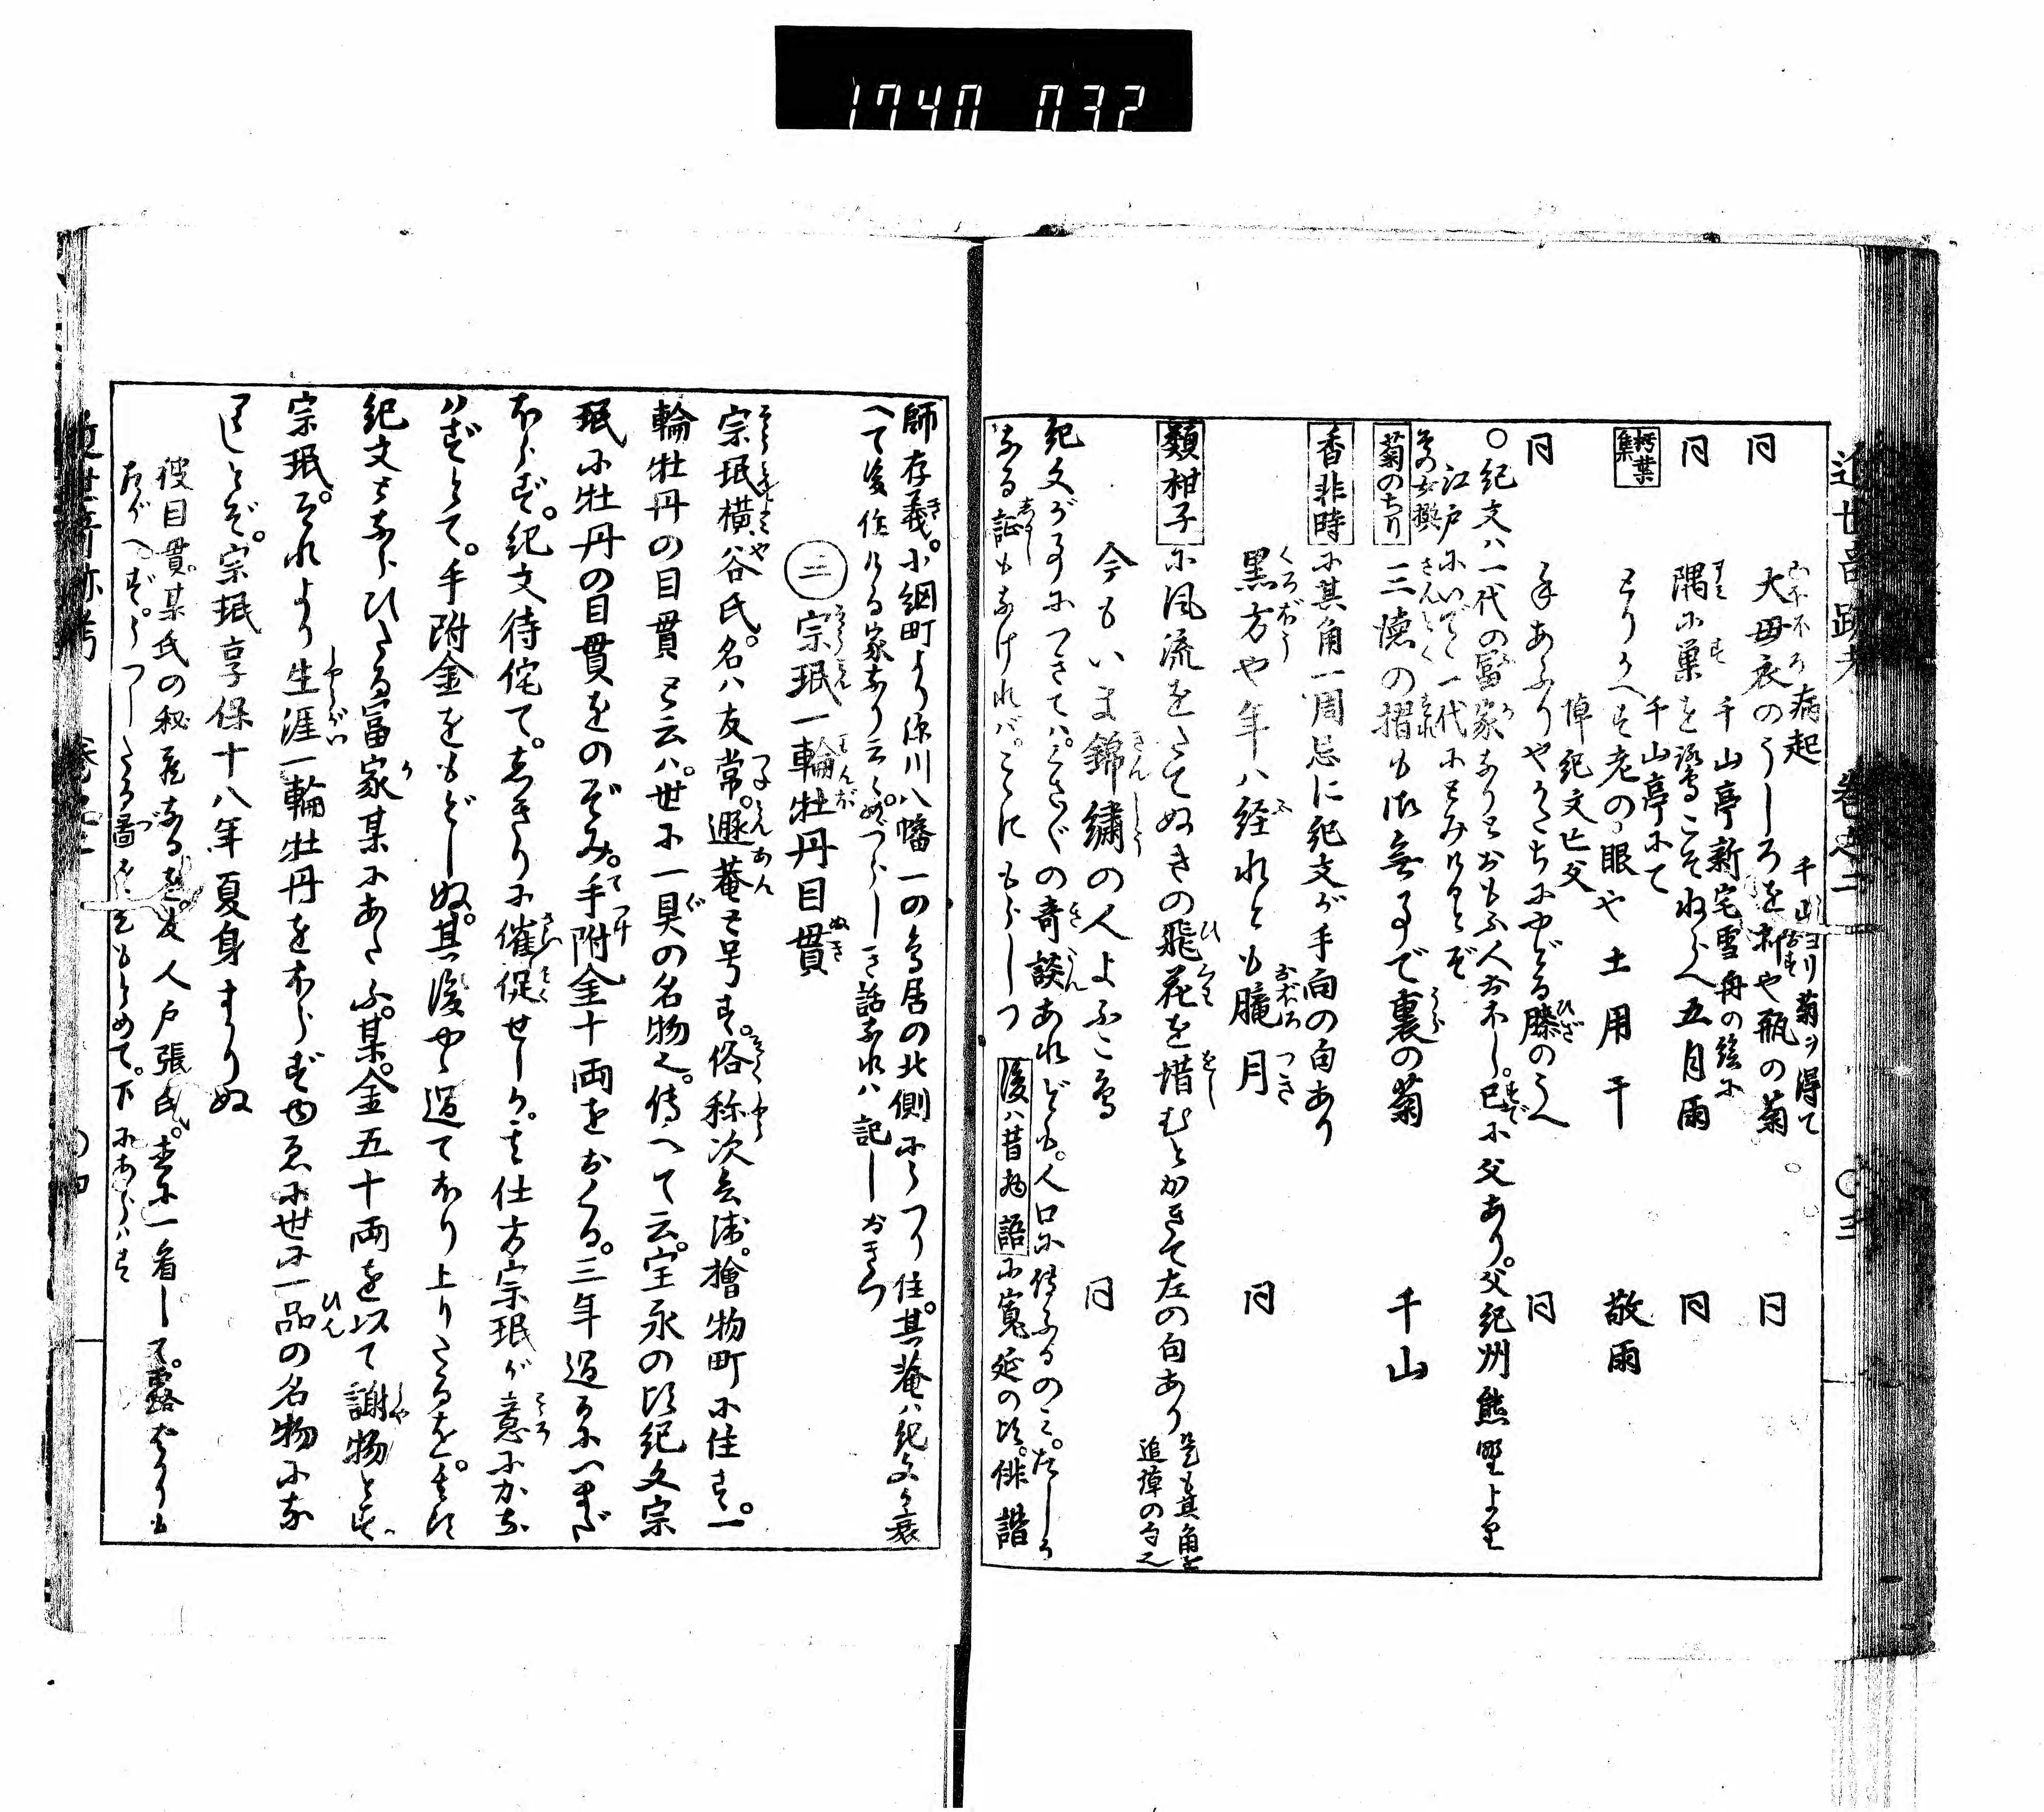 1740 032
近世奇跡考 巻之二 〇三
病起 千山ヨリ菊ヲ得て
同 大母衣のうしろを祈や瓶の菊 同
千山亭新宅雪舟の絵に
同 隅に巣を鷺こそねらへ五月雨 同
千山亭にて
枯葉集 とりかへす老の眼や土用干 敬雨
悼紀文亡父
同 手あふりやかたちにやどる膝のうへ 同
〇紀文ハ一代の冨家なりとおもふ人おほし。已に父あり。父紀州熊野より
江戸にいでゝ一代にとみけりとぞ
菊のちり 三徳の摺も似無事で裏の菊 千山
香非時に其角一周忌に紀文が手向の句あり
黒方や年ハ経れとも朧月 同
類柑子に風流をたてぬきの飛花を惜むとかきて左の句あり 是も其角を追悼の句也
今もいま錦繍の人よふこ鳥 同
紀文が事につきてハ。くさ〴〵の奇談あれども。人口に傳ふるのミ。たしか
なる証もなけれバ。こゝにもらしつ 後ハ昔物語に寛延の比。俳諧
師存義。小網町より深川八幡一の鳥居の北側にうつり住。其菴ハ紀文か衰
へて後作りける家なり云々。めづらしき話なれハ記しおきつ
㊁ 宗珉一輪牡丹目貫
宗珉横谷氏。名ハ友常。遯菴と号す。俗称次兵衛。檜物町に住す。一
輪牡丹の目貫と云ハ。世に一具の名物也。傳へて云。宝永の比紀文宗
珉に牡丹の目貫をのぞみ。手附金十両をおくる。三年過るにいまだ
ほらず。紀文待侘て。しきりに催促せしか。其仕方宗珉が意にかな
ハずとて。手附金をもどしぬ。其後やゝ過てほり上りたるを。其比
紀文とならひたる富家某にあたふ。某。金五十両を以て謝物とす。
宗珉。それより生涯一輪牡丹をほらずゆゑに世に一品の名物にな
りしとぞ。宗珉享保十八年夏身まかりぬ
彼目貫。某氏の秘蔵なるを。友人戸張氏。幸に一看して。露ばかりも
たがへず。うつしたる圖をこひもとめて。下にあらハす
近世奇跡考 巻之二 〇四